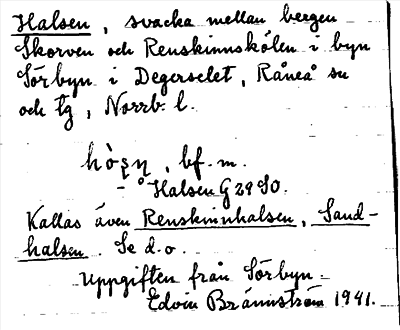 Halsen, svacka mellan bergen
Skorven och Renskinnskölen i byn
Sörbyn i Degerselet, Råneå sn
och tg, Norrb. l.
bf. m.
Halsen G 29 SO.
Kallas även Renskinnhalsen, Sand-
halsen. Se d.o.
Uppgiften från Sörbyn.
Edvin Brännström 1941.